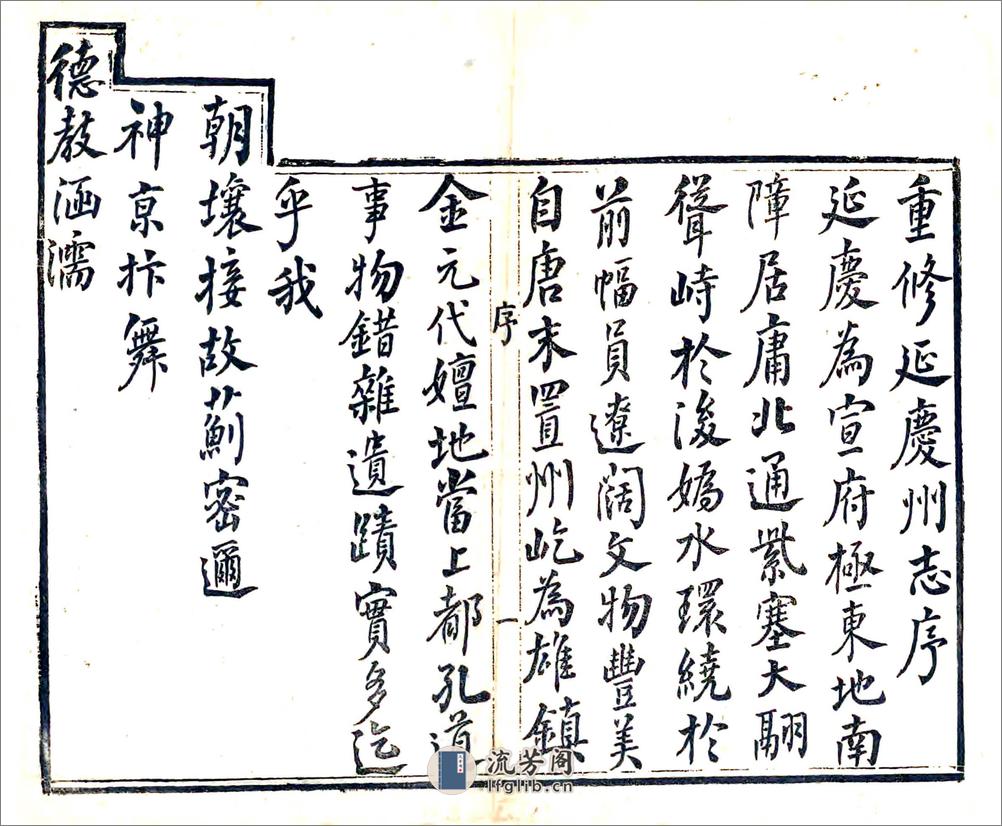 重修延慶州志序
延慶為宣府極東地南
障居庸北通紫塞大翮
聳峙於後媯水環繞於
前幅員遼闊文物豐美
自唐末置州屹為雄鎮
序
一
金元代嬗地當上都孔道
事物錯雜遺蹟實多迄
乎我
朝壤接故薊密邇
神京抃舞
德教涵濡
流芳阁
lfglib.cn